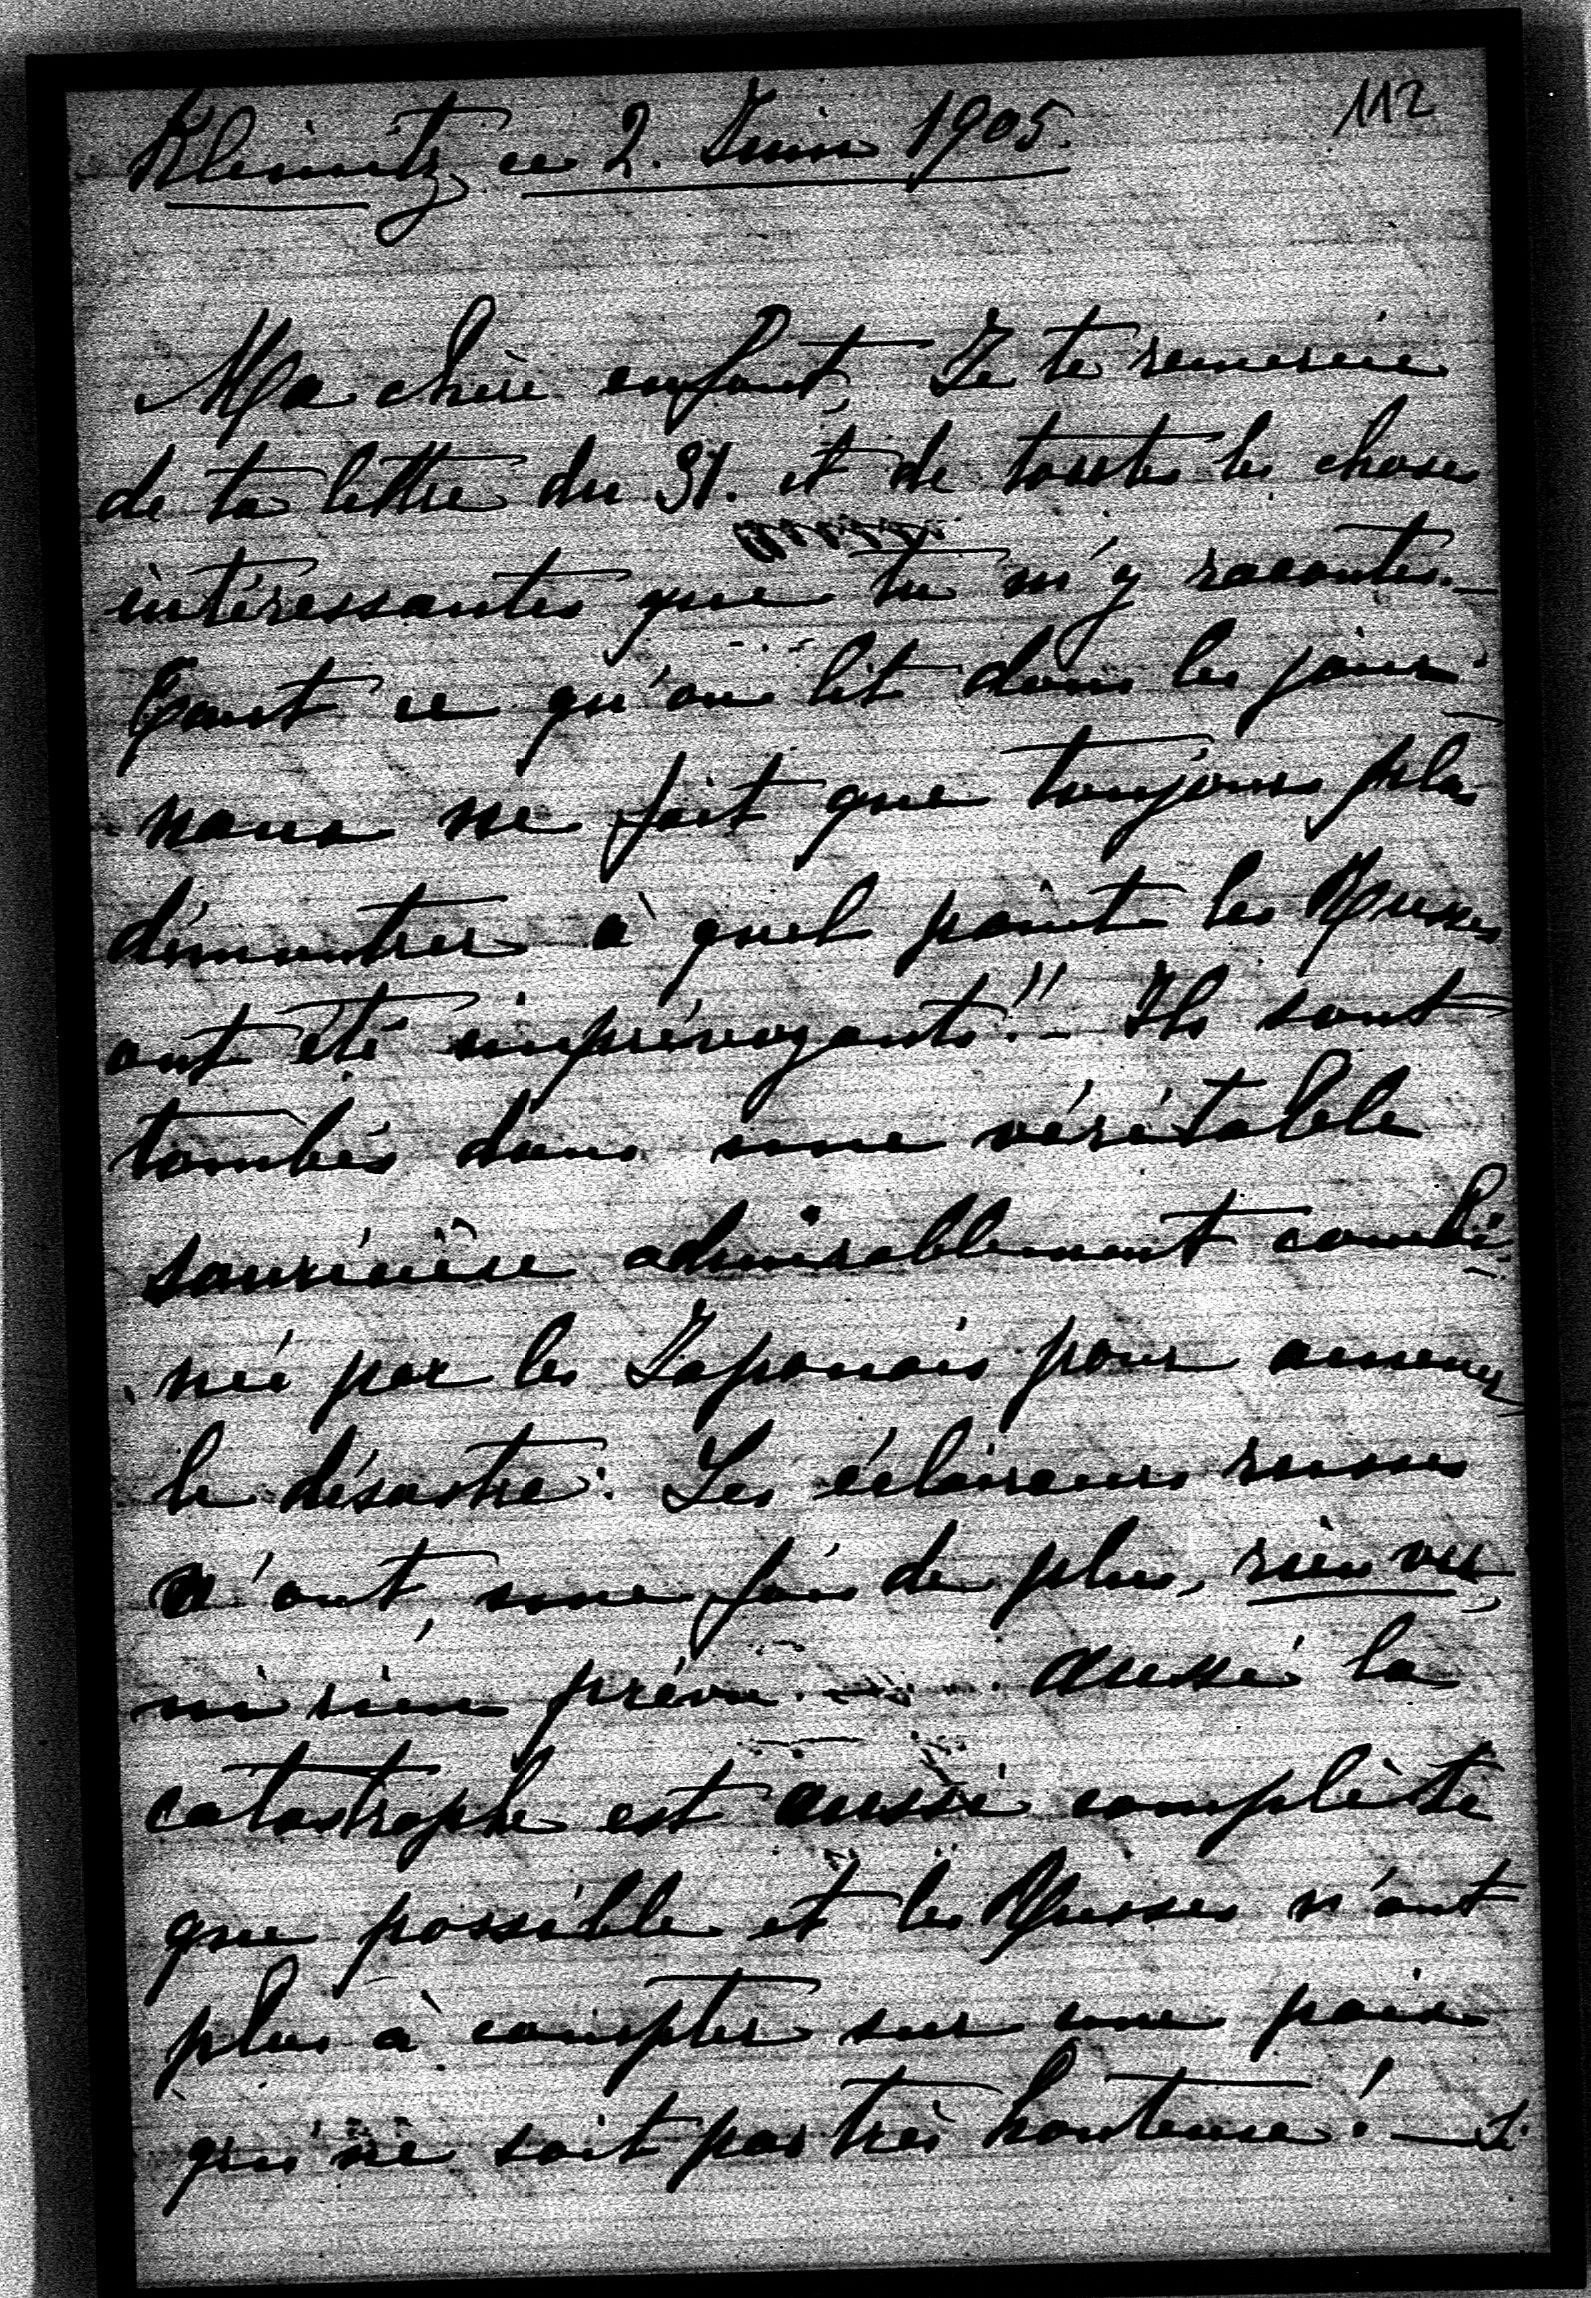 112
Kleinitz ce 2. Juin 1905.
Ma chère enfant, Je te remercie
de ta lettre du 31. et de toutes les choses
intéressantes que tu m'y racontes. —
Tout ce qu'on lit dans les jour-
naux ne fait que toujours plus
démontrer à quel point les Russes
ont été imprévoyants!! — Ils sont
tombés dans une véritable
souricière admirablement combi-
née par les Japonais pour amener
le désastre. Les éclaireurs russes
n'ont, une fois de plus, rien vu,
ni rien prévu. aussi la
catastrophe est aussi complète
que possible et les Russes n'ont
plus à compter sur une paix
qui ne soit pas très honteuse! —